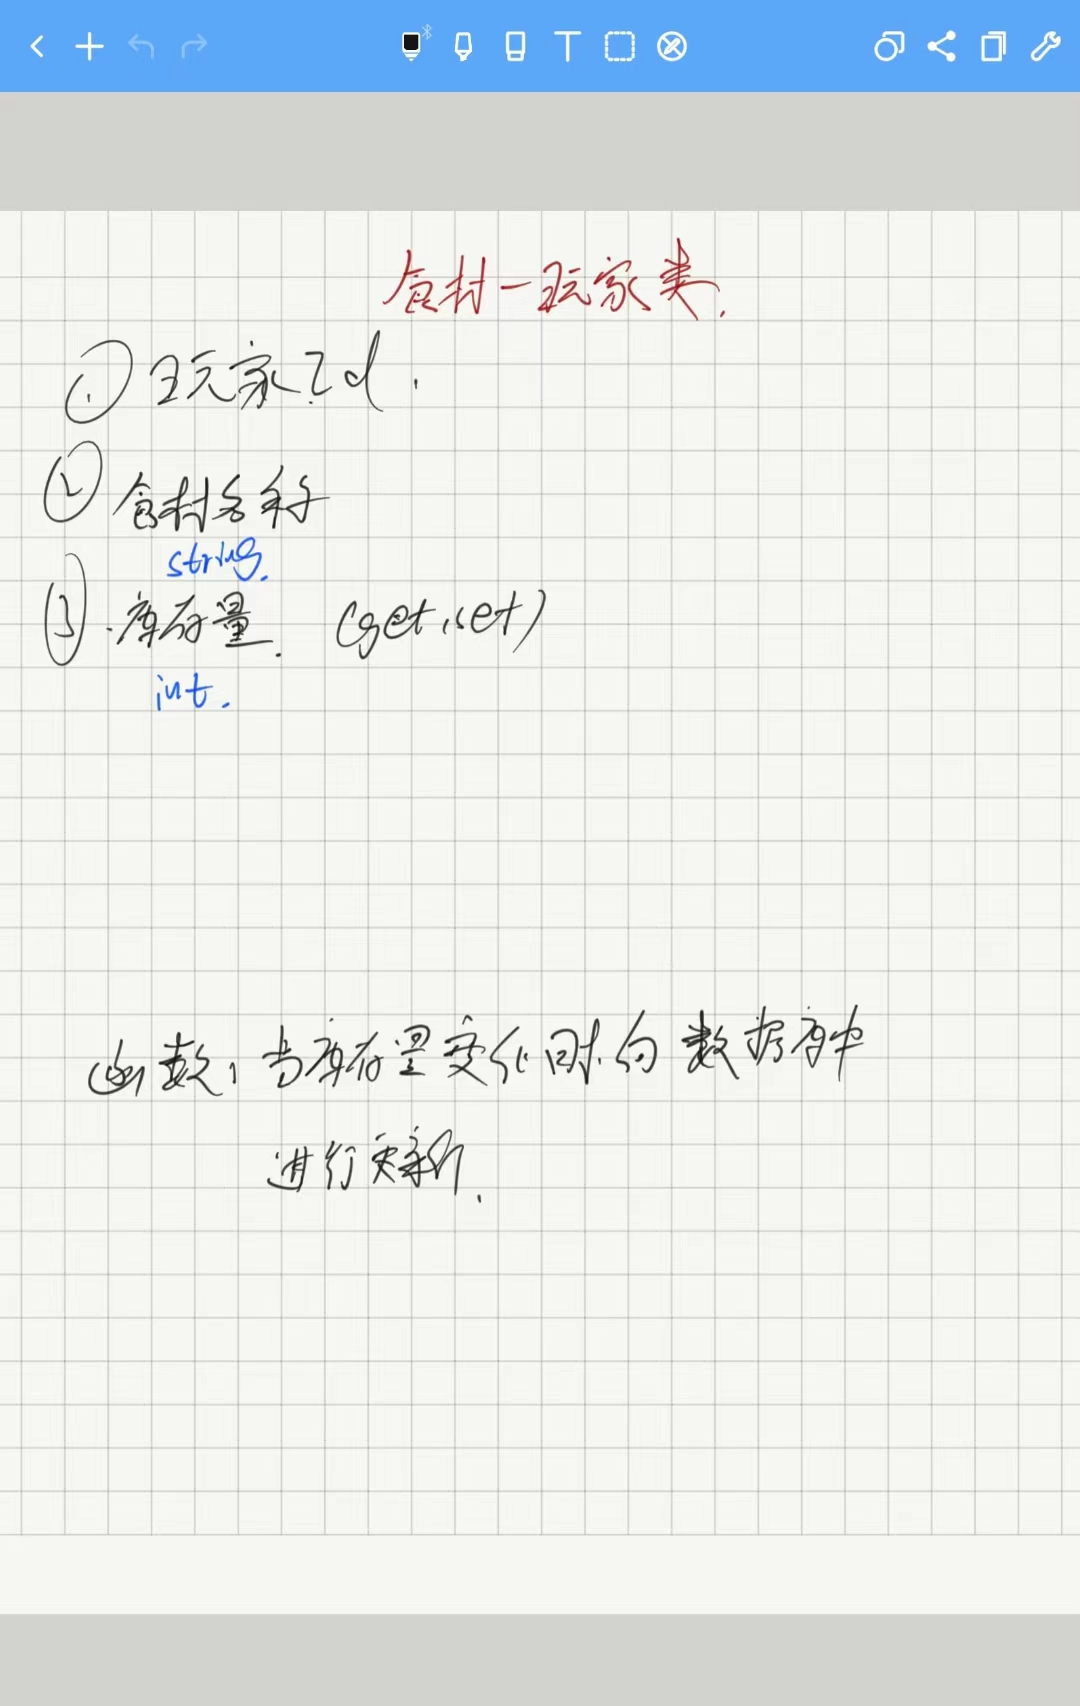 食材一玩家类.
① 玩家Id.
② 食材名称
string.
③.库存量. (get,set)
int.
函数: 当库存量变化时向数据库中
进行更新.